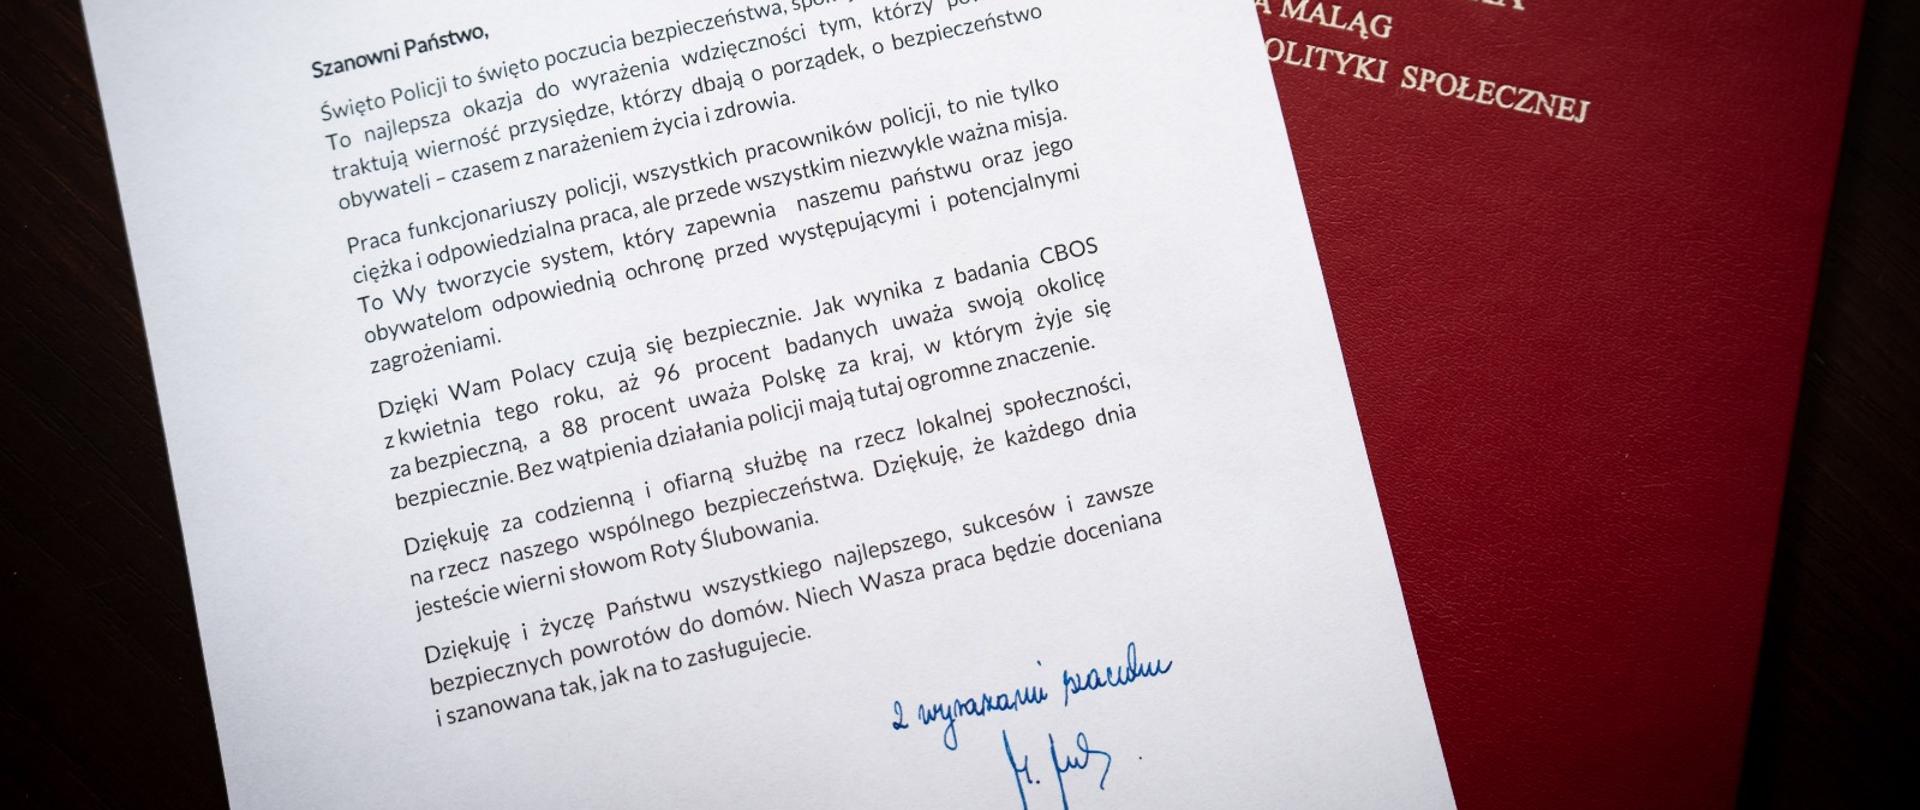 Szanowni Państwo,
Święto Policji to święto poczucia bezpieczeństwa,
To najlepsza okazja do wyrażenia wdzięczności tym, którzy
traktują wierność przysiędze, którzy dbają o porządek, o bezpieczeństwo
obywateli – czasem z narażeniem życia i zdrowia.
Praca funkcjonariuszy policji, wszystkich pracowników policji, to nie tylko
ciężka i odpowiedzialna praca, ale przede wszystkim niezwykle ważna misja.
To Wy tworzycie system, który zapewnia naszemu państwu oraz jego
obywatelom odpowiednią ochronę przed występującymi i potencjalnymi
zagrożeniami.
Dzięki Wam Polacy czują się bezpiecznie. Jak wynika z badania CBOS
z kwietnia tego roku, aż 96 procent badanych uważa swoją okolicę
za bezpieczną, a 88 procent uważa Polskę za kraj, w którym żyje się
bezpiecznie. Bez wątpienia działania policji mają tutaj ogromne znaczenie.
Dziękuję za codzienną i ofiarną służbę na rzecz lokalnej społeczności,
na rzecz naszego wspólnego bezpieczeństwa. Dziękuję, że każdego dnia
jesteście wierni słowom Roty Ślubowania.
Dziękuję i życzę Państwu wszystkiego najlepszego, sukcesów i zawsze
bezpiecznych powrotów do domów. Niech Wasza praca będzie doceniana
i szanowana tak, jak na to zasługujecie.
Z wyrazami szacunku
A MALĄG
OLITYKI SPOŁECZNEJ